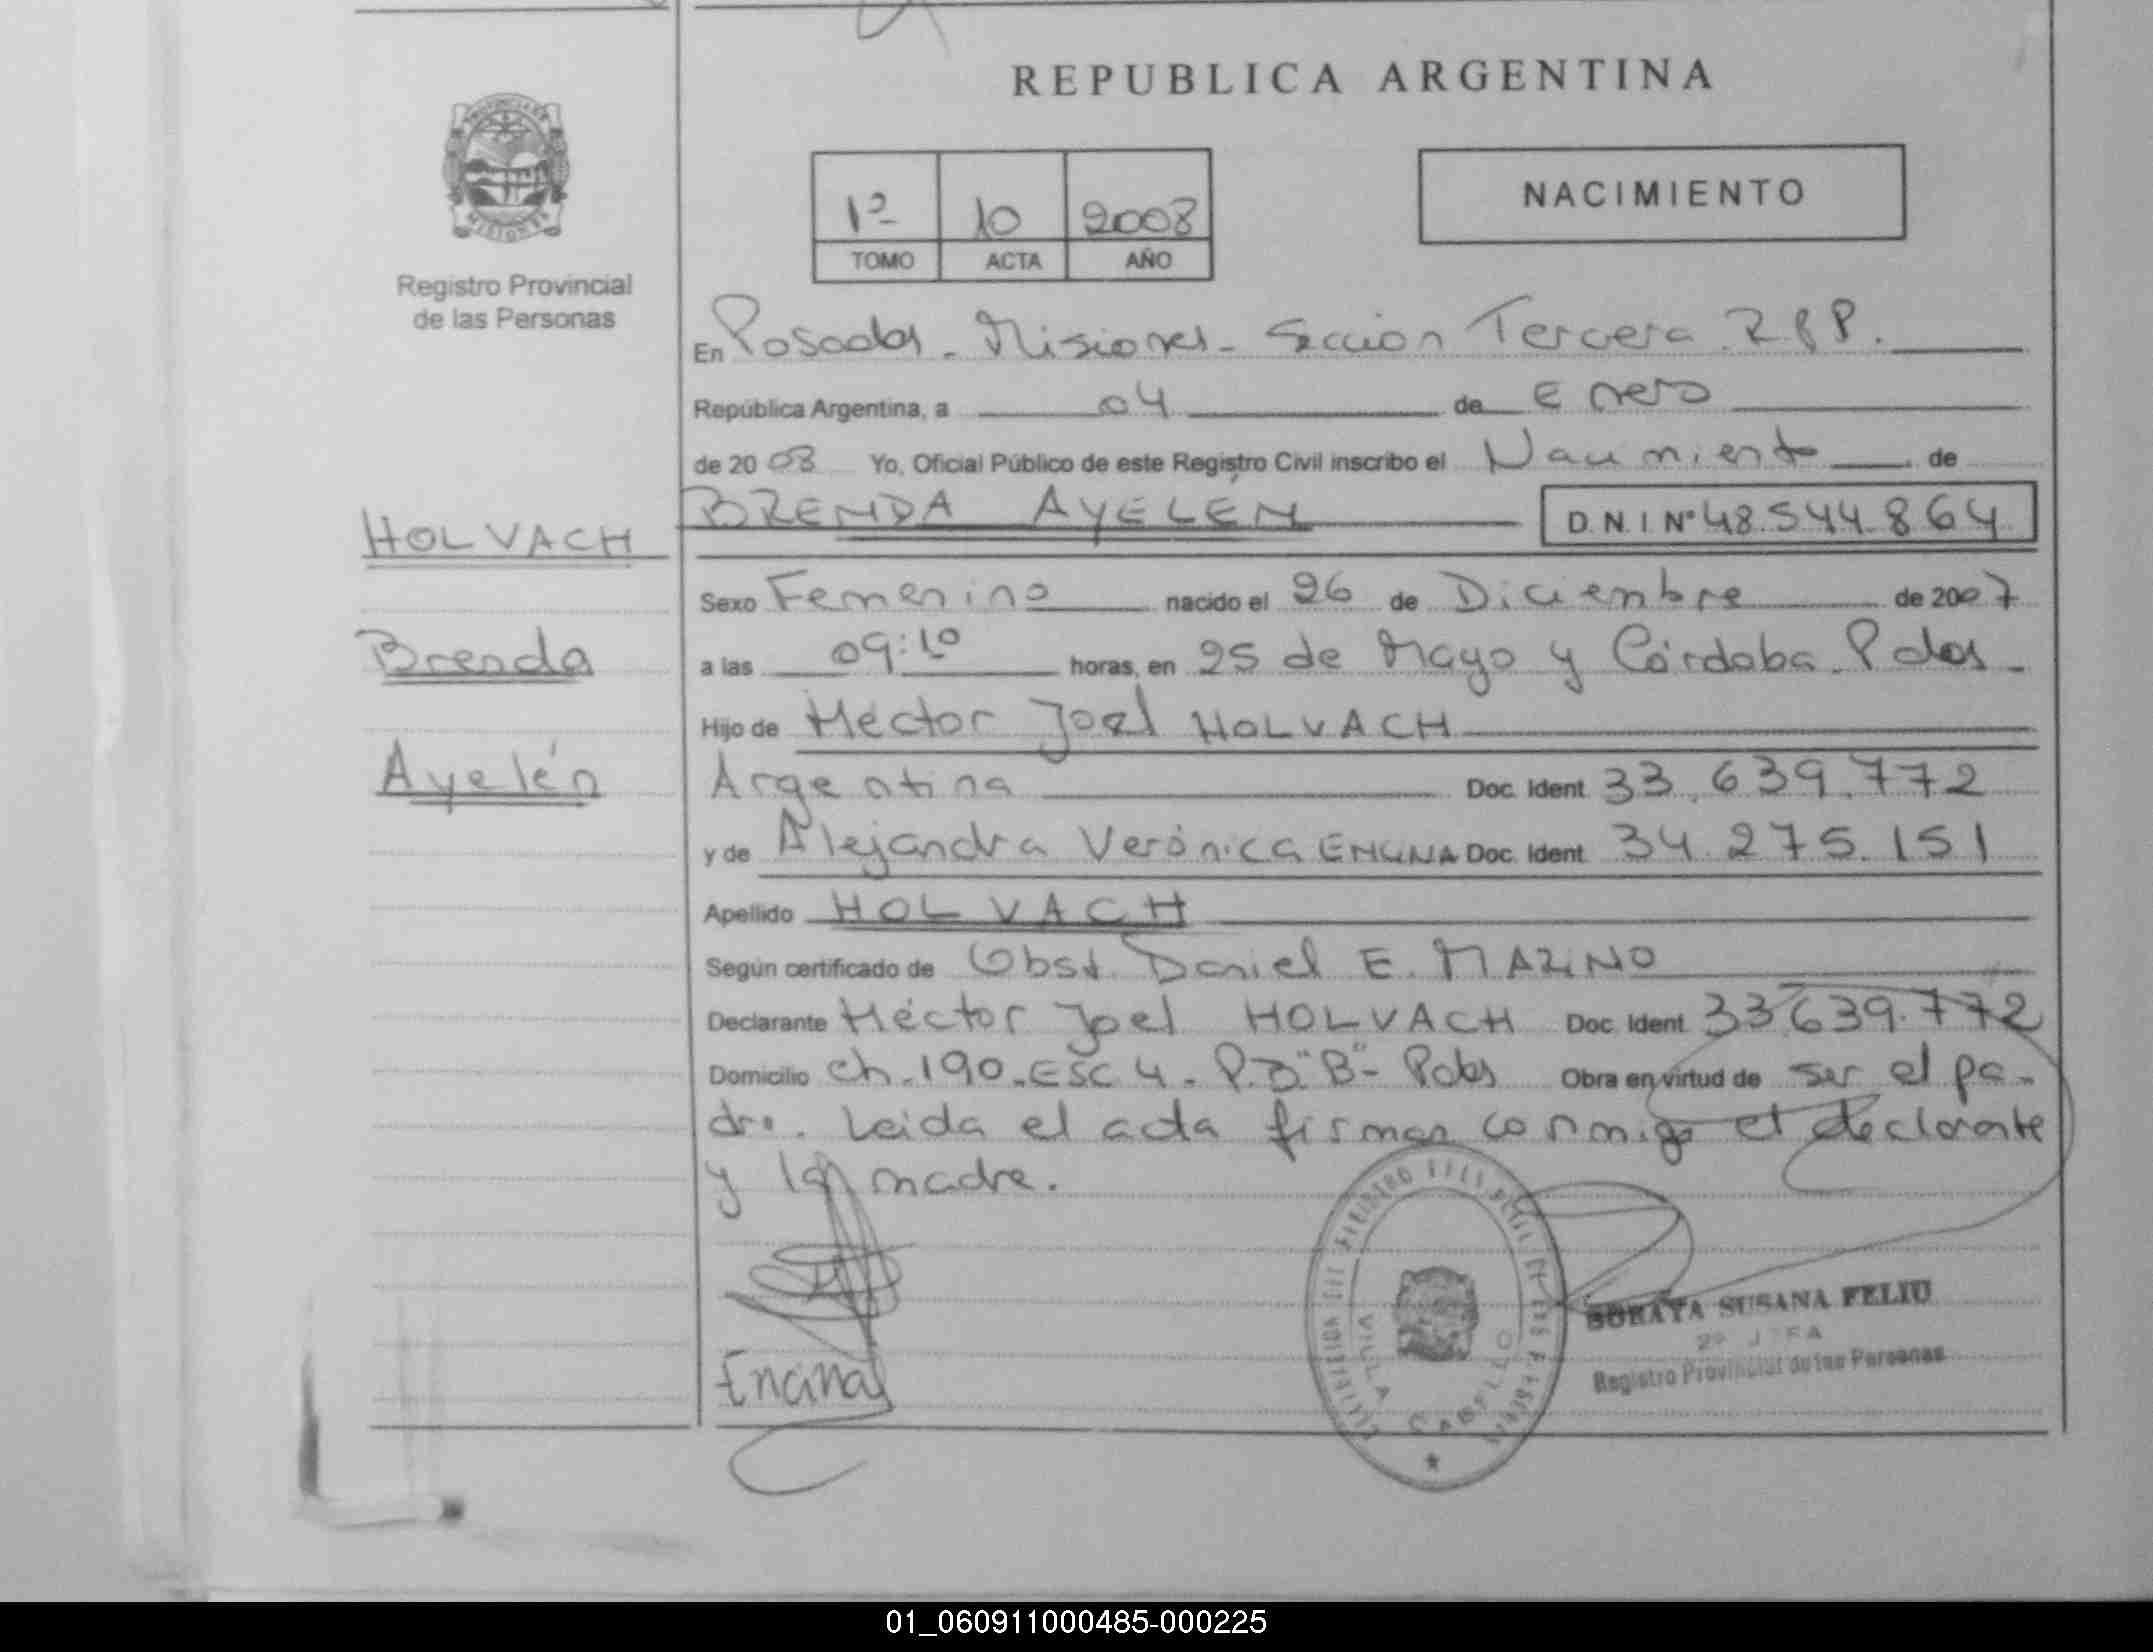 REPUBLICA ARGENTINA
PROVINCIA DE
MISIONES
Registro Provincial
de las Personas
1º 10 2008
TOMO ACTA AÑO
NACIMIENTO
En Posadas - Misiones - Sección Tercera R P P.
República Argentina, a 04 de Enero
de 2008 Yo, Oficial Público de este Registro Civil inscribo el Nacimiento de
BRENDA AYELÉN D.N.I Nº 48.544.864
HOLVACH
Brenda
Ayelén
Sexo Femenino nacido el 26 de Diciembre de 2007
a las 09:10 horas, en 25 de Mayo y Córdoba - Pdas -
Hijo de Héctor Joel HOLVACH
Argentina Doc. Ident. 33.639.772
y de Alejandra Verónica ENCINA Doc. Ident. 34.275.151
Apellido HOLVACH
Según certificado de Obst. Daniel E. MAZINO
Declarante Héctor Joel HOLVACH Doc. Ident. 33.639.772
Domicilio Ch. 190 - ESC 4 - P.B. "B" - Pdas Obra en virtud de ser el pa-
dre. Leida el acta firman conmigo el declarante
y la madre.
VILLA CABELLO
SORAYA SUSANA FELIU
2º JEFA
Registro Provincial de las Personas
Encina
01_060911000485-000225